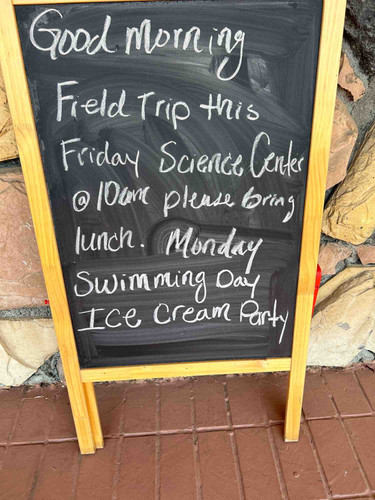 Good morning
Field Trip this
Friday Science Center
@ 10am please bring
lunch. Monday
Swimming Day
Ice Cream Party